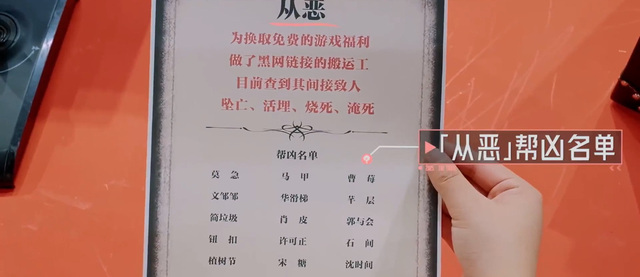 从恶
为换取免费的游戏福利
做了黑网链接的搬运工
目前查到其间接致人
坠亡、活埋、烧死、淹死
帮凶名单
莫急 马甲 曹莓
文邹邹 华滑梯 芊层
简垃圾 肖皮 郭与会
钮扣 许可正 石间
植树节 宋糖 沈时间
「从恶」帮凶名单